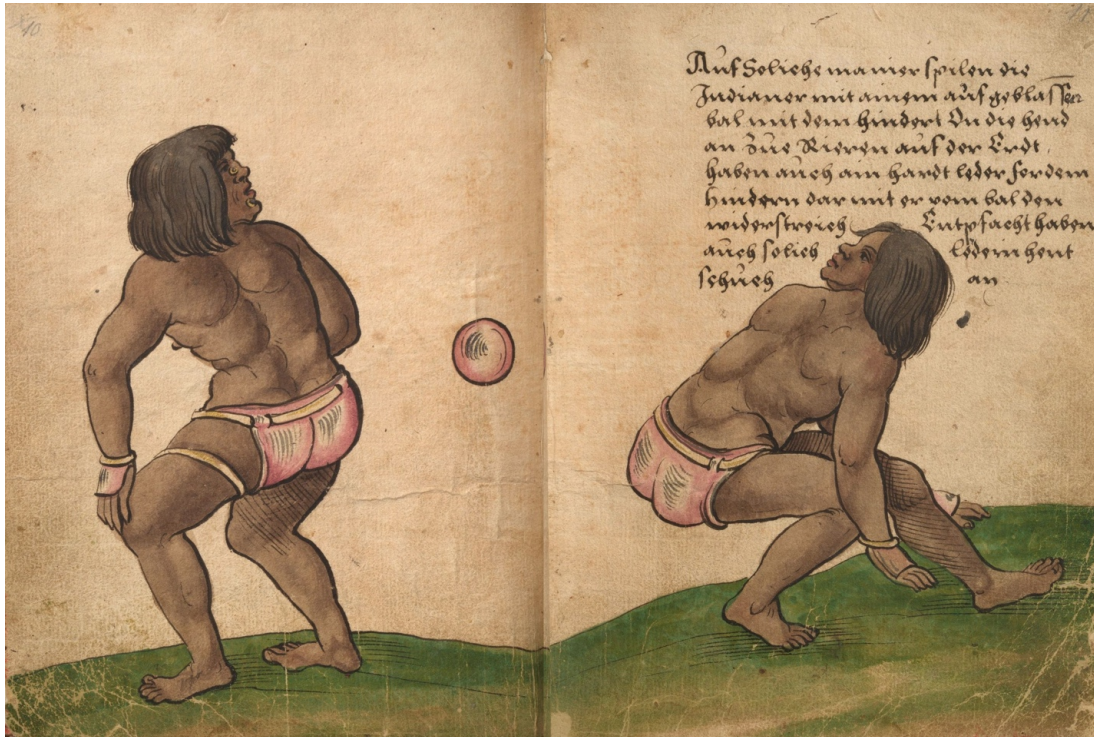 10
Auf Soliche manier spilen die
Indianer mit ainem auf geblassen
bal mit dem hindert On die hend
an Zue Rieren auf der Erdt.
haben auch ain hardt leder for dem
hindern dar mit er vom bal den
widerstreich Entpfacht haben
auch solich ledern hent
schuech an